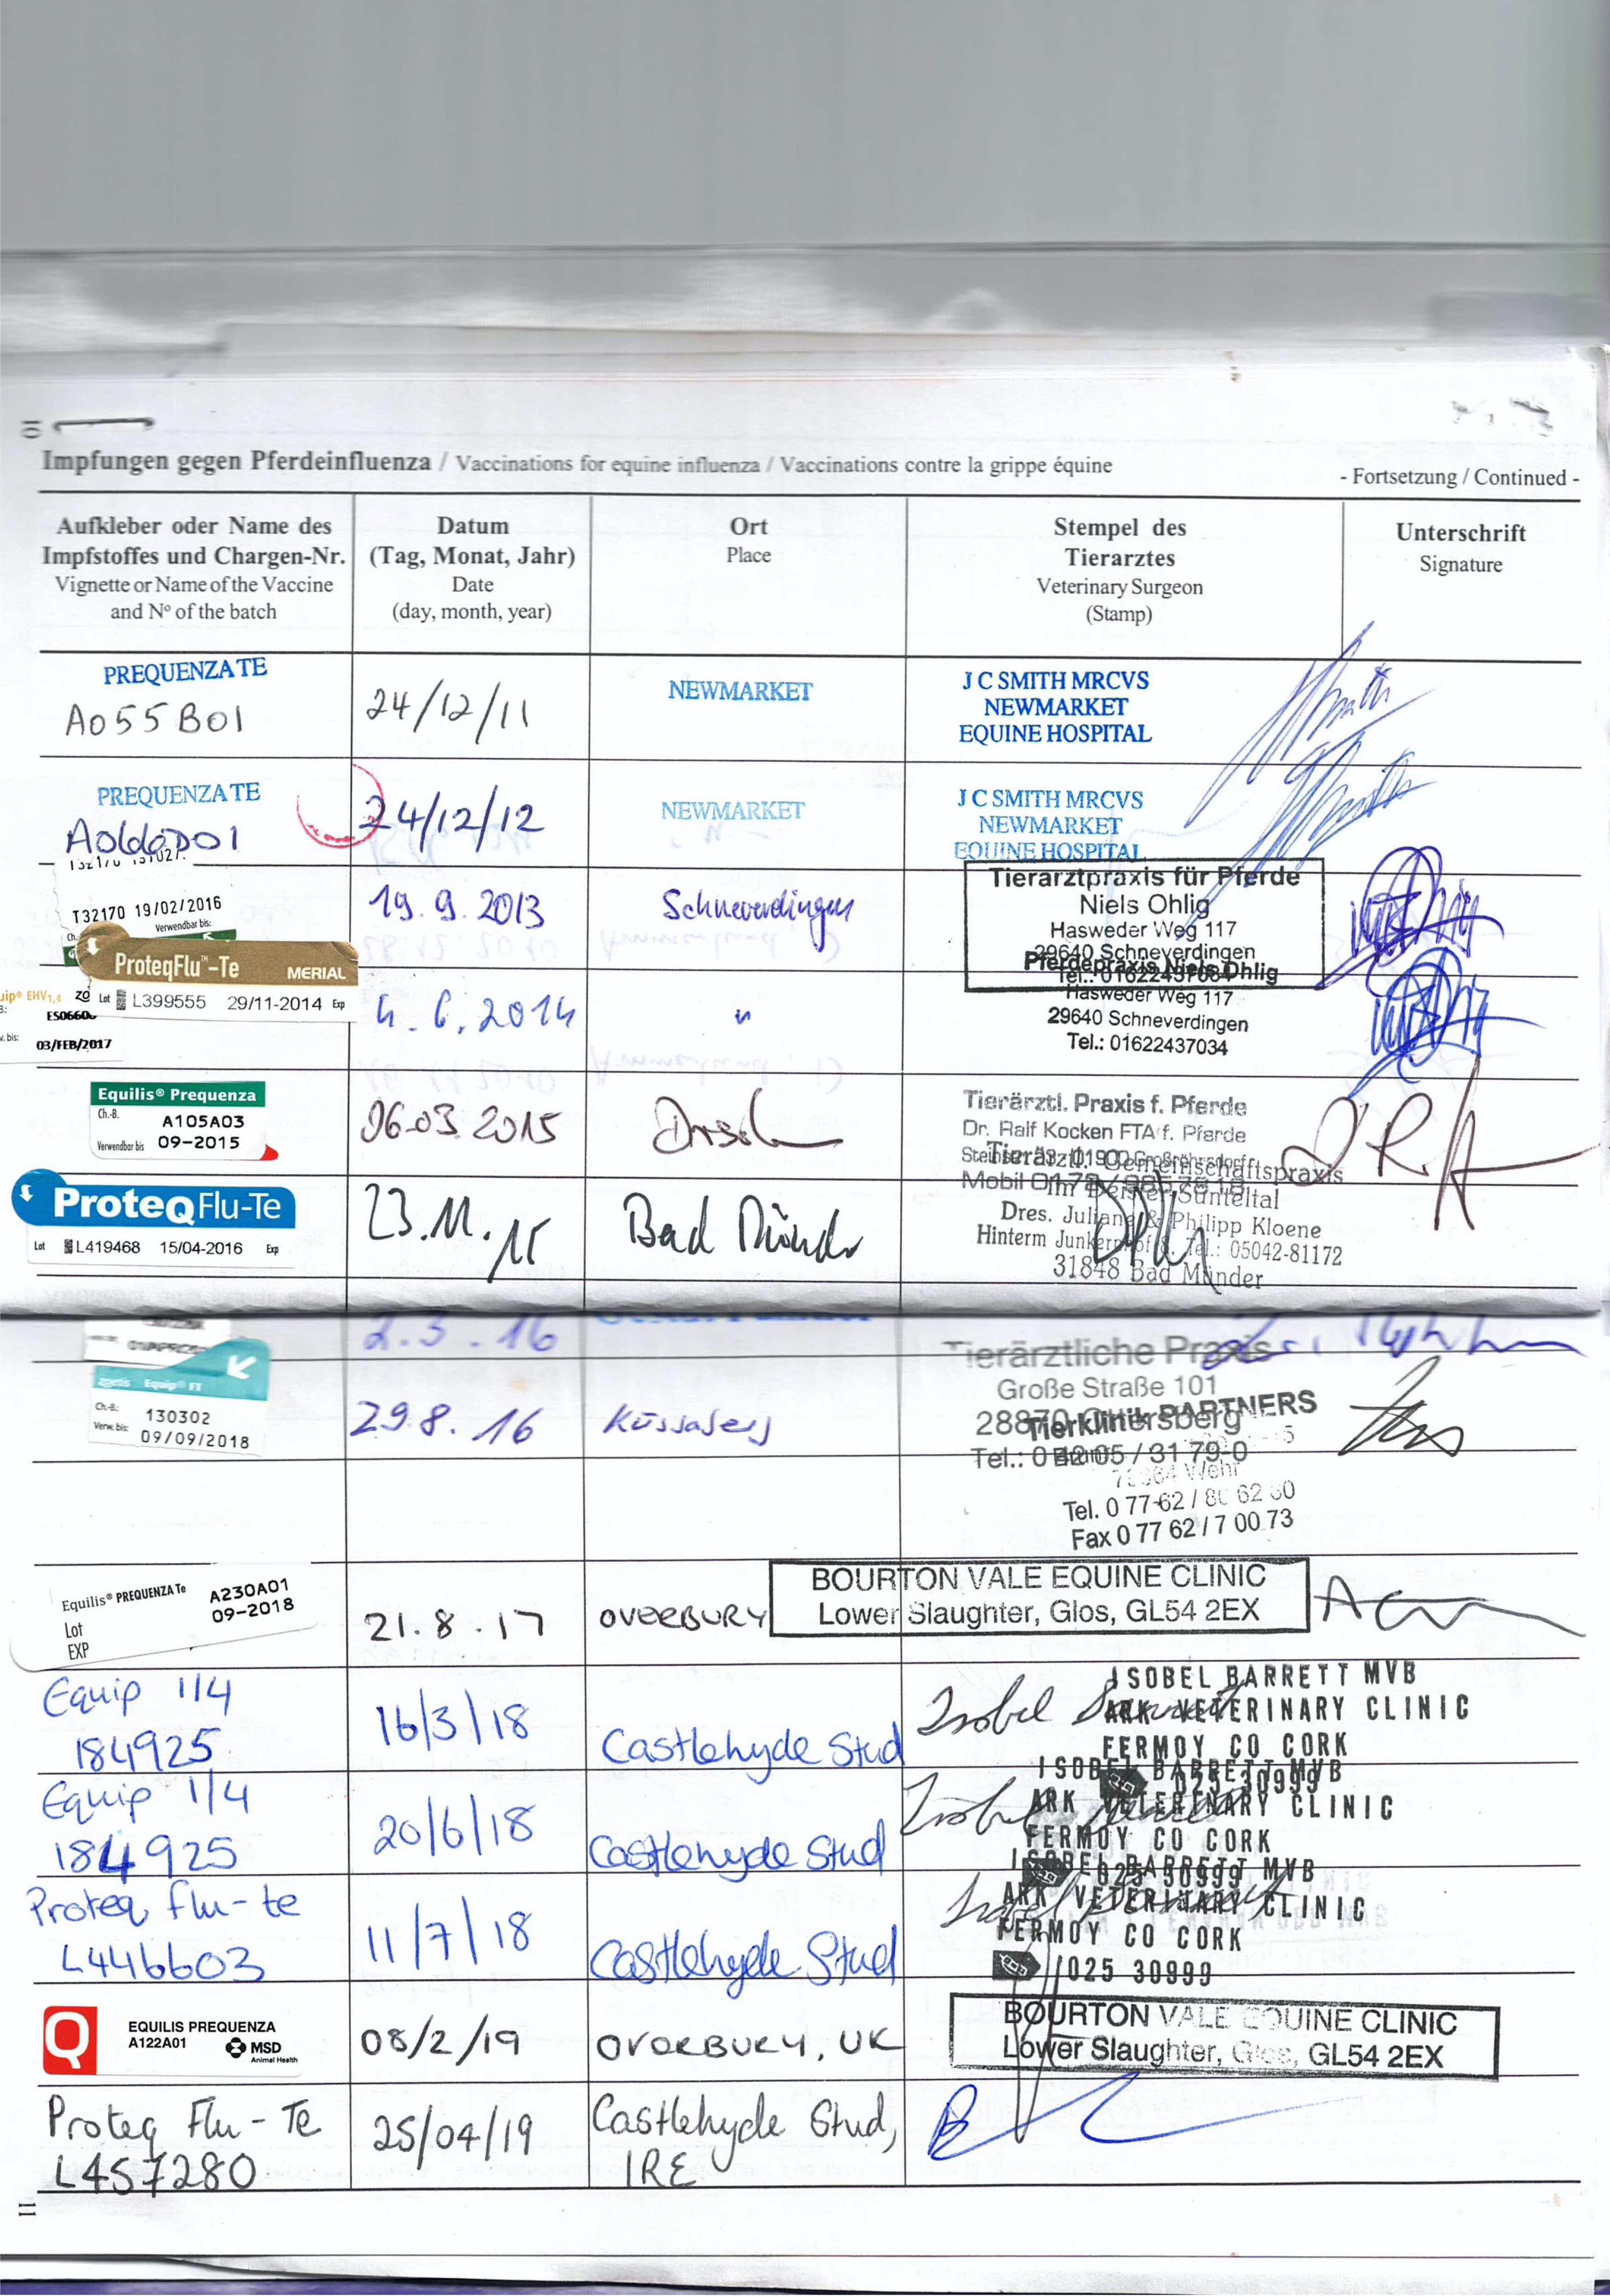 10
Impfungen gegen Pferdeinfluenza / Vaccinations for equine influenza / Vaccinations contre la grippe équine
- Fortsetzung / Continued -
Aufkleber oder Name des Impfstoffes und Chargen-Nr.
Vignette or Name of the Vaccine and Nº of the batch
Datum (Tag, Monat, Jahr)
Date (day, month, year)
Ort
Place
Stempel des Tierarztes
Veterinary Surgeon (Stamp)
Unterschrift
Signature
PREQUENZA TE
A055B01
24/12/11
NEWMARKET
J C SMITH MRCVS
NEWMARKET
EQUINE HOSPITAL
PREQUENZA TE
A066D01
24/12/12
NEWMARKET
J C SMITH MRCVS
NEWMARKET
EQUINE HOSPITAL
T32170 19/02/2016
Verwendbar bis:
19.9.2013
Schneverdingen
Tierarztpraxis für Pferde
Niels Ohlig
Hasweder Weg 117
29640 Schneverdingen
ProteqFlu™-Te
MERIAL
Lot L399555 29/11-2014 Exp
EHV1,4
03/FEB/2017
4.6.2014
"
Pferdepraxis Niels Ohlig
Hasweder Weg 117
29640 Schneverdingen
Tel.: 01622437034
Equilis® Prequenza
Ch.-B.
A105A03
Verwendbar bis 09-2015
06.03.2015
Tierärztl. Praxis f. Pferde
Dr. Ralf Kocken FTA f. Pferde
ProteqFlu-Te
Lot L419468 15/04-2016 Exp
23.11.15
Bad Münder
Tierärztl. Gemeinschaftspraxis
Im Deister-Sünteltal
Dres. Juliane & Philipp Kloene
Hinterm Junkernhof 8. Tel.: 05042-81172
31848 Bad Münder
2.3.16
Tierärztliche Praxis
Große Straße 101
28870 Ottersberg
Tel.: 0 42 05 / 31 79-0
zoetis Equip® FT
Ch.-B.: 130302
Verw. bis: 09/09/2018
29.8.16
Küssaberg
Tierklinik PARTNERS
Wehr
Tel. 0 77 62 / 80 62 60
Fax 0 77 62 / 7 00 73
Equilis® PREQUENZA Te
A230A01
09-2018
Lot
EXP
21.8.17
OVERBURY
BOURTON VALE EQUINE CLINIC
Lower Slaughter, Glos, GL54 2EX
Equip 1/4
184925
16/3/18
Castlehyde Stud
Isobel Barrett
ISOBEL BARRETT MVB
ARK VETERINARY CLINIC
FERMOY CO CORK
025 30999
Equip 1/4
184925
20/6/18
Castlehyde Stud
Isobel Barrett
ISOBEL BARRETT MVB
ARK VETERINARY CLINIC
FERMOY CO CORK
025 30999
Proteq flu-te
L446603
11/7/18
Castlehyde Stud
Isobel Barrett
ISOBEL BARRETT MVB
ARK VETERINARY CLINIC
FERMOY CO CORK
025 30999
Q
EQUILIS PREQUENZA
A122A01
MSD
Animal Health
08/2/19
OVERBURY, UK
BOURTON VALE EQUINE CLINIC
Lower Slaughter, Glos, GL54 2EX
Proteq Flu-Te
L457280
25/04/19
Castlehyde Stud,
IRE
11